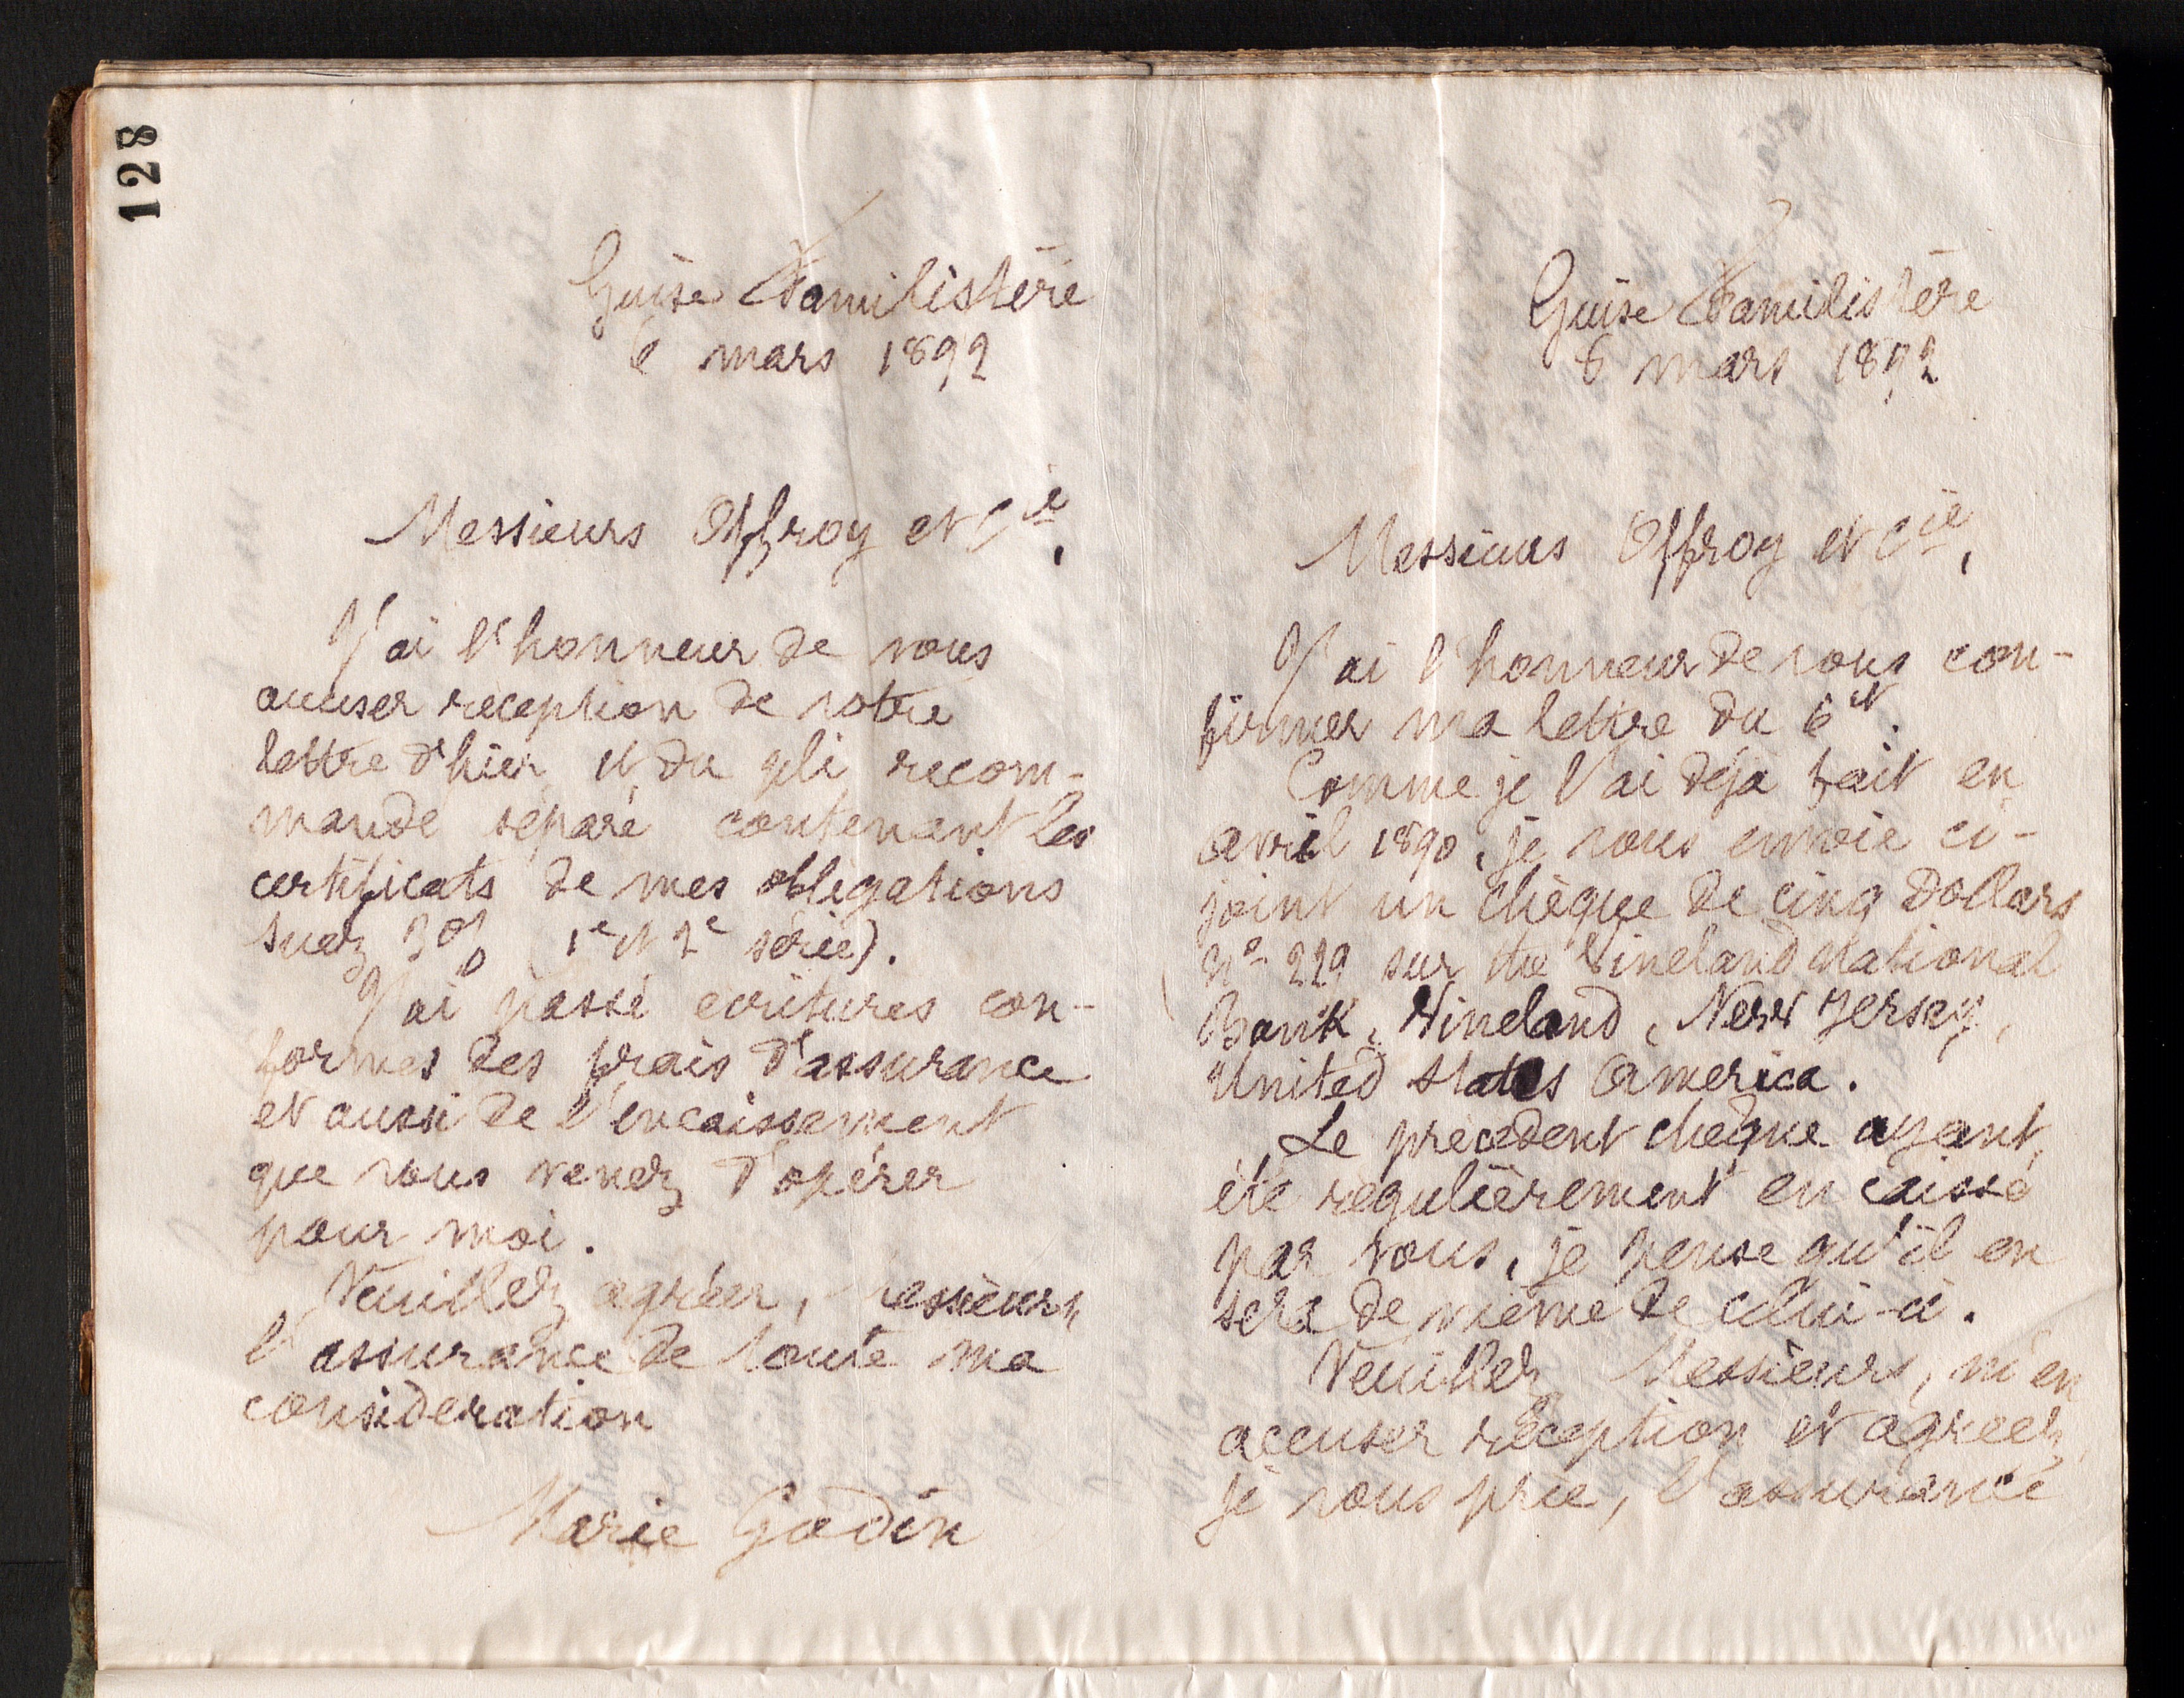 128
Guise Familistère
6 mars 1892
Messieurs Offroy et Cie,
J'ai l'honneur de vous
accuser réception de votre
lettre d'hier et du pli recom-
mandé séparé contenant les
certificats de mes obligations
Suez 3% 1e et 2e série).
J'ai passé écritures con-
formes des frais d'assurance
et aussi de l'encaissement
que vous venez d'opérer
pour moi.
Veuillez agréer, Messieurs,
l'assurance de toute ma
considération
Marie Godin
Guise Familistère
8 mars 1892
Messieurs Offroy et Cie,
J'ai l'honneur de vous con-
firmer ma lettre du 6 ct.
Comme je l'ai déjà fait en
avril 1890, je vous envoie ci-
joint un chèque de cinq dollars
No 229 sur the Vineland National
Bank, Vineland, New Jersey,
United States America.
Le précédent chèque ayant
été régulièrement encaissé
par vous, je pense qu'il en
sera de même de celui-ci.
Veuillez Messieurs, m'en
accuser réception et agréer,
je vous prie, l'assurance